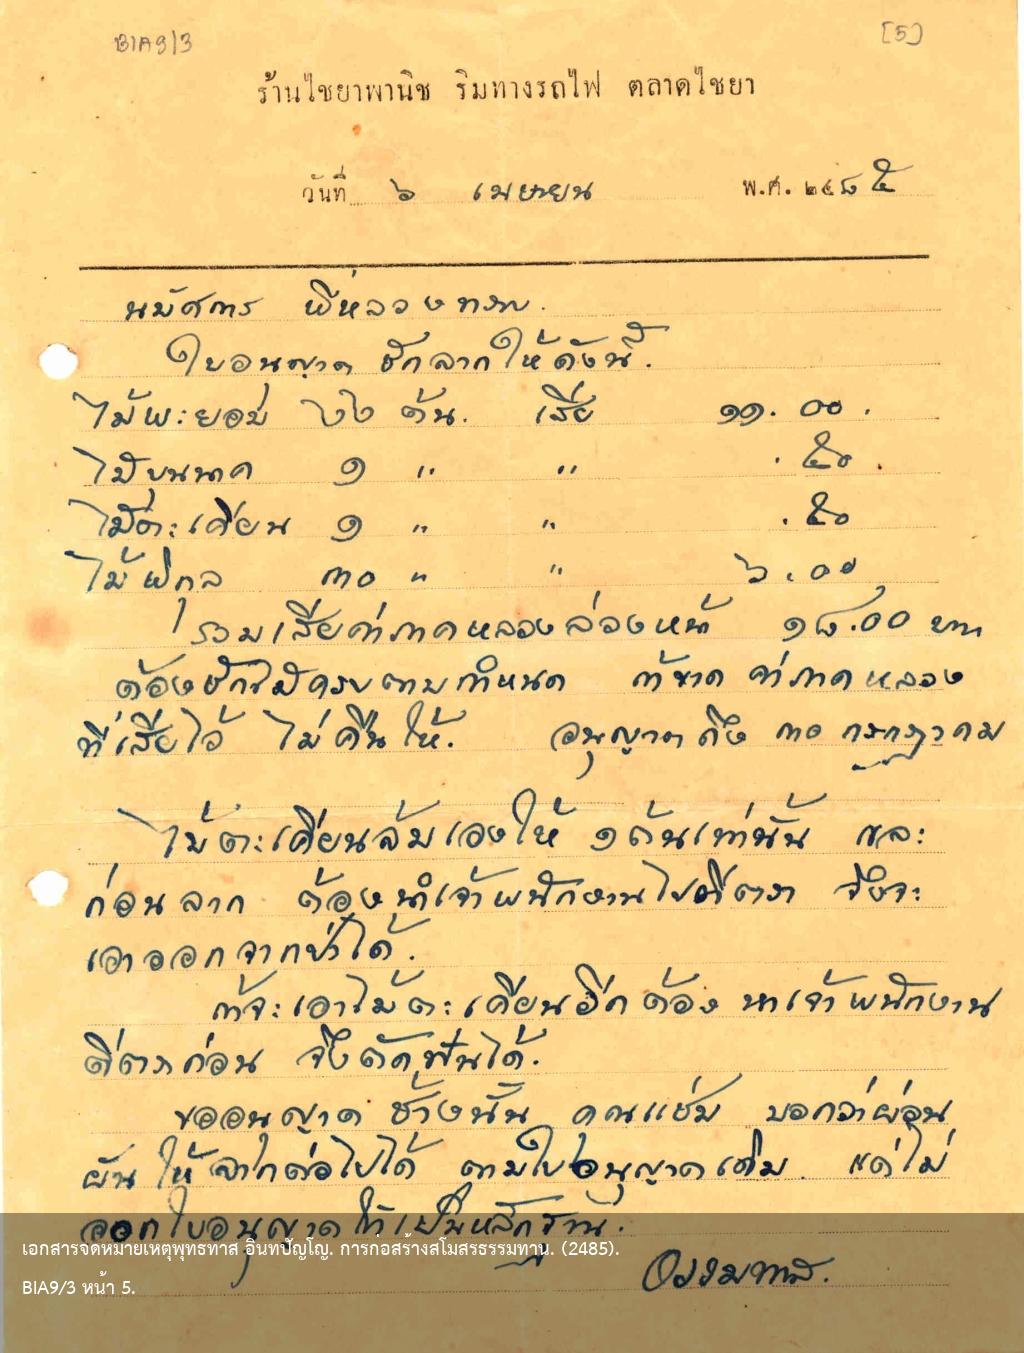 BIA9/3 [5]
ร้านไชยาพานิช ริมทางรถไฟ ตลาดไชยา
วันที่ ๖ เมษายน พ.ศ. ๒๔๘๕
นมัศการ พี่หลวง
ใบอนุญาต ชักลากให้ดังนี้.
ไม้พะยอม ๒๒ ต้น. เสีย ๑๑.๐๐.
ไม้บุนนาค ๑ " " .๕๐.
ไม้ตะเคียน ๑ " " .๕๐
ไม้พิกุล ๓๐ " " ๖.๐๐
รวมเสียค่าภาคหลวงล่วงหน้า ๑๘.๐๐ บาท
ต้องชักไม้ครบตามกำหนด ถ้าขาด ค่าภาคหลวง
ที่เสียไว้ ไม่คืนให้. อนุญาตถึง ๓๐ กรกฎาคม
ไม้ตะเคียนล้มเองให้ ๑ ต้นเท่านั้น และ
ก่อนลาก ต้องนำเจ้าพนักงานไปตีตรา จึงจะ
เอาออกจากป่าได้.
ถ้าจะเอาไม้ตะเคียนอีกต้อง นำเจ้าพนักงาน
ตีตราก่อน จึงตัดฟันได้.
ขออนุญาต ช้างนั้น คุณแช่ม บอกว่าผ่อน
ผัน ให้ลากต่อไปได้ ตามใบอนุญาตเดิม. แต่ไม่
ออกใบอนุญาตให้เป็นหลักฐาน.
ธรรมทาส.
เอกสารจดหมายเหตุพุทธทาส อินทปัญโญ. การก่อสร้างสโมสรธรรมทาน. (2485).
BIA9/3 หน้า 5.